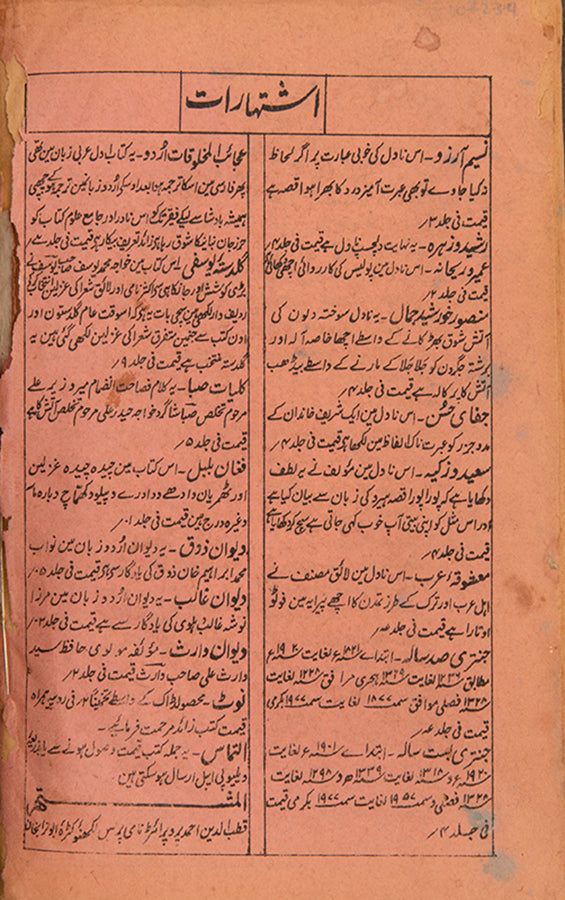 اشتہارات
نسیم آرزو۔ اس ناول کی خوبی عبارت پر اگر لحاظ
نہ کیا جاوے تو بھی عبرت آمیز درد کا بھرا ہوا قصہ ہے
قیمت فی جلد ۳؍
رشید و زہرہ۔ یہ نہایت دلچسپ ناول ہے قیمت فی جلد ۴؍
عمرو ریحانہ۔ اس ناول مین پولیس کی کارروائی اچھی
قیمت فی جلد ۲؍
منصور خورشید جمال۔ یہ ناول سوختہ دلون کی
آتش شوق بھڑکانے کے واسطے اچھا خاصہ آلہ اور
برشتہ جگرون کو جلا جلا کے مارنے کے واسطے بیڈھب
آتش کا پرکالہ ہے قیمت فی جلد ۴؍
جفای حسن۔ اس ناول مین ایک شریف خاندان کے
مدوجزر کو عبرت ناک الفاظ مین لکھا ہے قیمت فی جلد ۴؍
سعید و زکیہ۔ اس ناول مین مؤلف نے یہ لطف
دکھایا ہے کہ پورا پورا قصہ ہیرو کی زبان سے بیان کیا ہے
اور اس مثل کو اپنی بیتی آپ خوب کہی جاتی ہے سچ کر دکھایا ہے
قیمت فی جلد ۴؍
معشوقہ عرب۔ اس ناول مین لائق مصنف نے
اہل عرب اور ترک کے طرز تمدن کا اچھے پیرایہ مین فوٹو
اوتارا ہے قیمت فی جلد ۸؍
جنتری صد سالہ۔ ابتداے ۱۸۲۱ء لغایت ۱۹۲۰ء
مطابق ۱۲۳۶ لغایت ۱۳۳۹ ہجری موافق ۱۲۲۸ لغایت
۱۳۲۸ فصلی موافق سمت ۱۸۷۷ لغایت سمت ۱۹۷۷ بکرمی
قیمت فی جلد ۸؍
جنتری بست سالہ۔ ابتداے ۱۹۰۱ء لغایت
۱۹۲۰ء و ۱۳۱۸ لغایت ۱۳۳۹ھ و ۱۲۹۸ لغایت
۱۳۲۸ فصلی و سمت ۱۹۵۷ لغایت سمت ۱۹۷۷ بکرمی قیمت
فی جلد ۴؍
عجائب المخلوقات اُردو۔ یہ کتاب اول عربی زبان مین تھی
پھر فارسی مین اسکا ترجمہ ہوا بعد اوسکے اُردو زبان مین ترجمہ ہوکے چھپی
ہمیشہ بادشاہ سے لیکے فقیر تک کے اس نادر اور جامع علوم کتاب کو
حرز جان بنانیکا شوق رہا ہے زائد تعریف بیکار ہے قیمت فی جلد
گلدستہ یوسفی۔ اس کتاب مین خواجہ محمد یوسف صاحب یوسف نے
بڑی کوشش اور جانکاہی سے نامی اور لائق شعرا کی غزلین انتخاب کرکے
ردیف وار لکھی ہین سچی بات یہ ہے کہ اسوقت عام گلدستون اور
اون کتب سے جنمین متفرق شعرا کی غزلین لکھی گئی ہین یہ
گلدستہ منتخب ہے قیمت فی جلد ۹؍
کلیات صبا۔ یہ کلام فصاحت انضمام میر وزیر علے
مرحوم تخلص صبا شاگرد خواجہ حیدر علی مرحوم تخلص آتش کا ہے
قیمت فی جلد ۵؍
فغان بلبل۔ اس کتاب مین چیدہ چیدہ غزلین
اور ٹھمریان و ادھے دوادرے و پیلو و کھماچ و بارہ ماسہ
وغیرہ درج ہین قیمت فی جلد ۱۰؍
دیوان ذوق۔ یہ دیوان اُردو زبان مین نواب
محمد ابراہیم خان ذوق کی یادگار سے ہے قیمت فی جلد ۵؍
دیوان غالب۔ یہ دیوان اُردو زبان مین مرزا
نوشہ غالب دہلوی کی یادگار سے ہے قیمت فی جلد ۳؍
دیوان وارث۔ مؤلفہ مولوی حافظ سید
وارث علی صاحب وارث قیمت فی جلد ۲؍
نوٹ۔ محصولڈاک کے واسطے تخمیناً ۲؍ فی روپیہ ہمراہ
قیمت کتب زائد مرحمت فرمائیے۔
التماس۔ یہ جملہ کتب قیمت وصول ہونے سے یا بذریعہ
ویلیو پی ایبل ارسال ہو سکتی ہین
المشتہر
قطب الدین احمد پروپرائٹر نامی پریس لکھنؤ کٹرہ ابو تراب خان